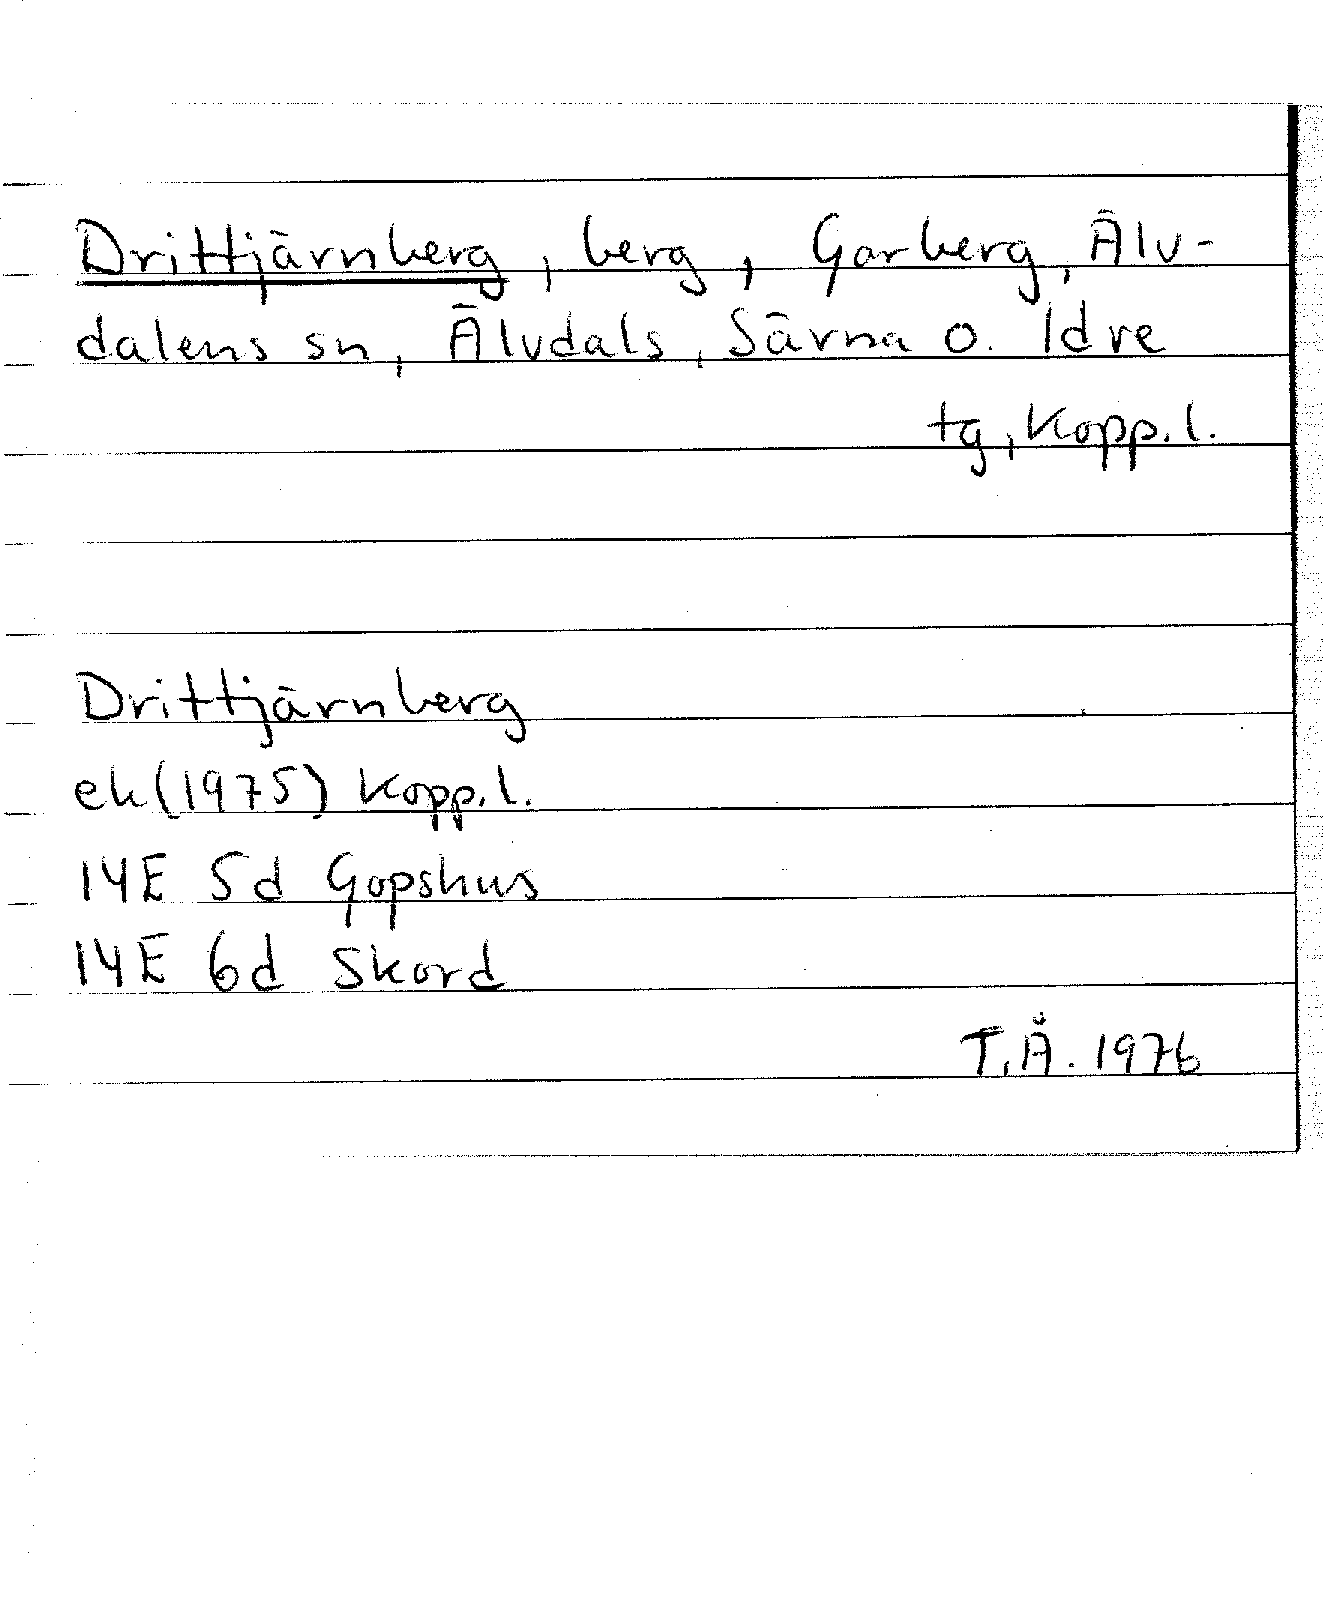 Drittjärnberg, berg, Garberg, Älv-
dalens sn, Älvdals, Särna o. Idre
tg, Kopp.l.
Drittjärnberg
ek (1975) Kopp.l.
14E 5d Gopshus
14E 6d Skord
T.Å. 1976